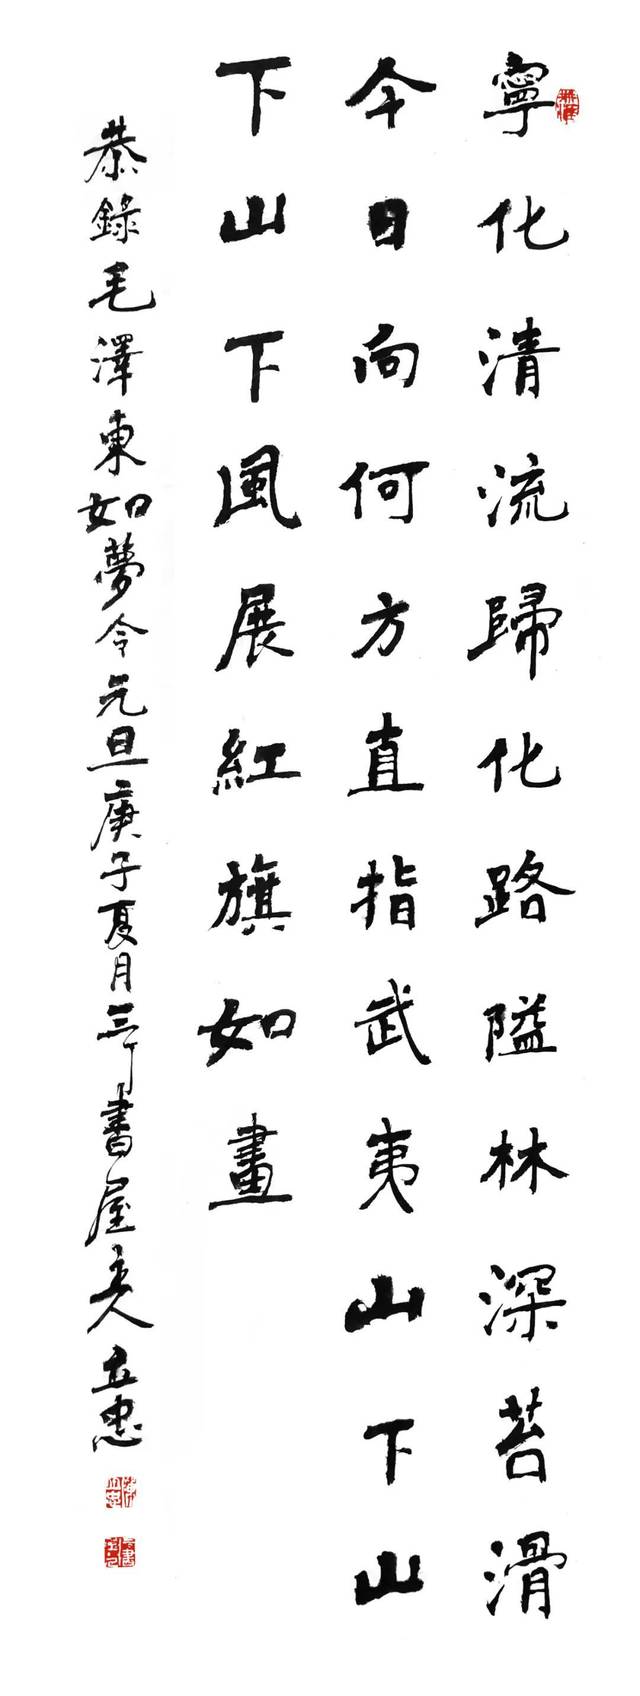 寧化清流歸化路隘林深苔滑
今日向何方直指武夷山下山
下山下風展紅旗如畫
恭錄毛澤東如夢令元旦庚子夏月三丁書屋主人立忠